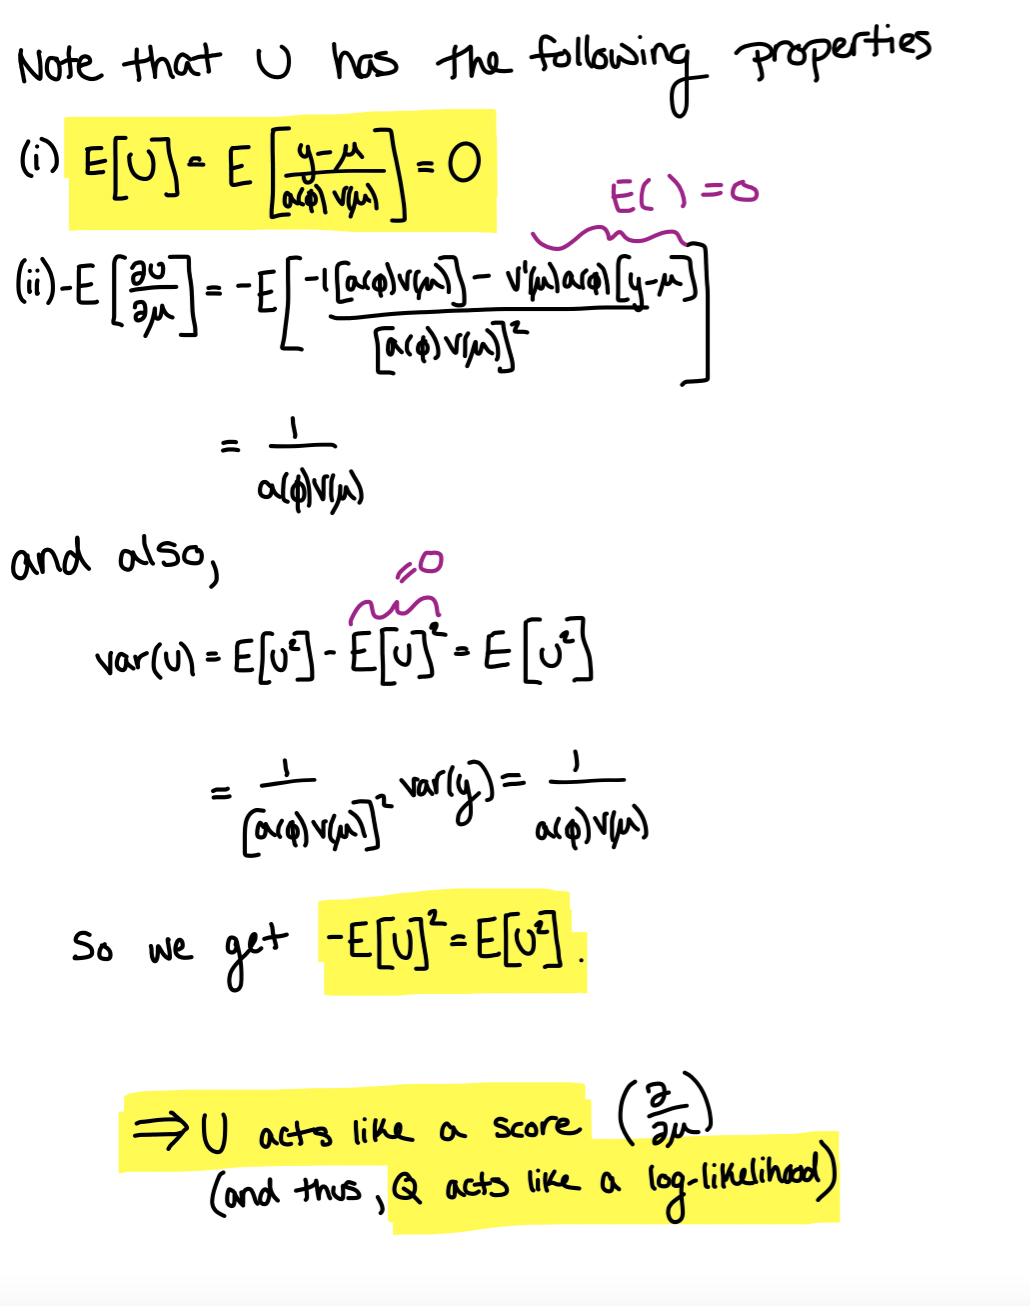 Note that U has the following properties
(i) E[U] = E[(y-μ)/(a(φ)v(μ))] = 0
E( ) = 0
(ii) -E[∂U/∂μ] = -E[(-1[a(φ)v(μ)] - v'(μ)a(φ)[y-μ])/[a(φ)v(μ)]²]
= 1/(a(φ)v(μ))
and also,
=0
var(U) = E[U²] - E[U]² = E[U²]
= 1/[a(φ)v(μ)]² var(y) = 1/(a(φ)v(μ))
So we get -E[U]² = E[U²].
⇒ U acts like a score (∂/∂μ)
(and thus, Q acts like a log-likelihood)